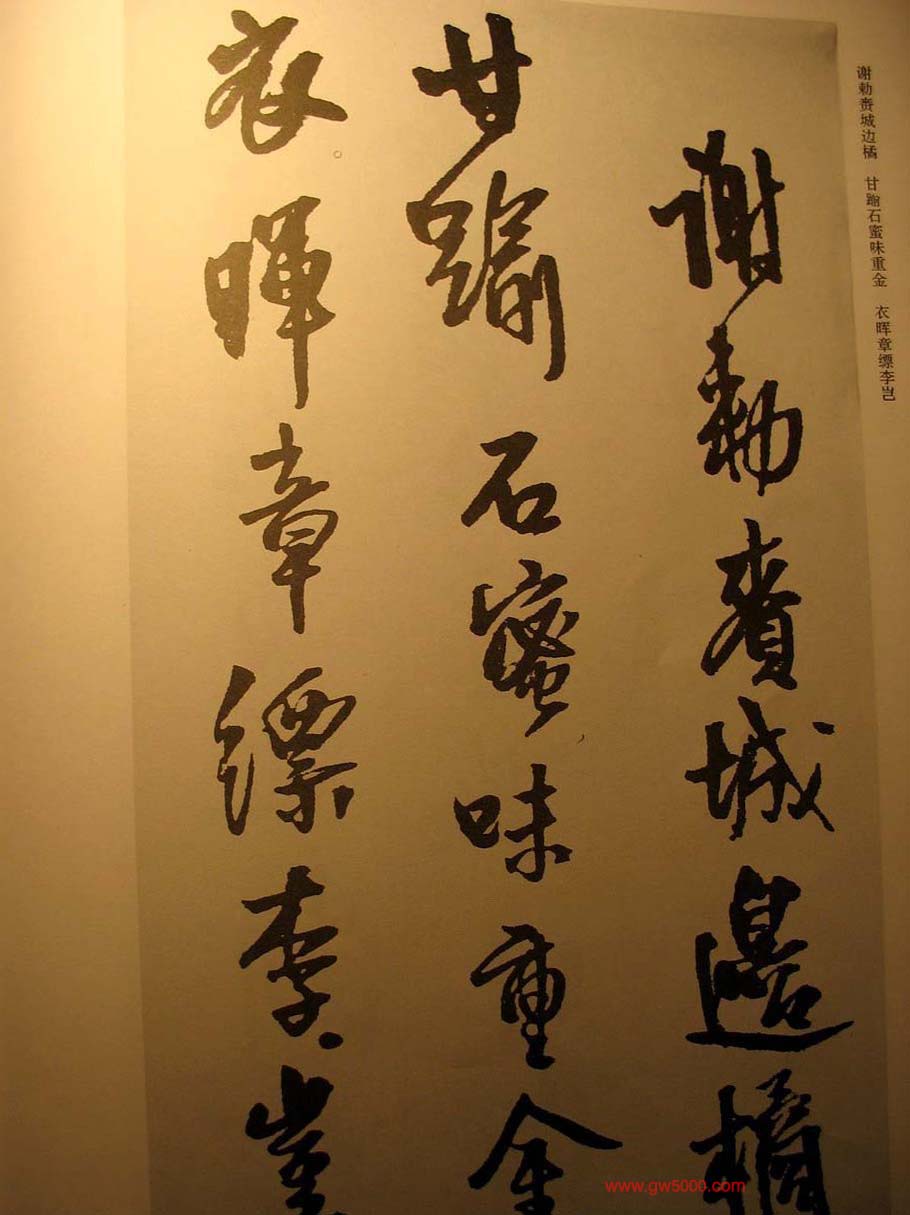 谢勅赉城边橘　甘踰石蜜味重金　衣晖章缥李岂
謝勅賚城邊橘
甘踰石蜜味重金
衣暉章縹李豈
www.gw5000.com